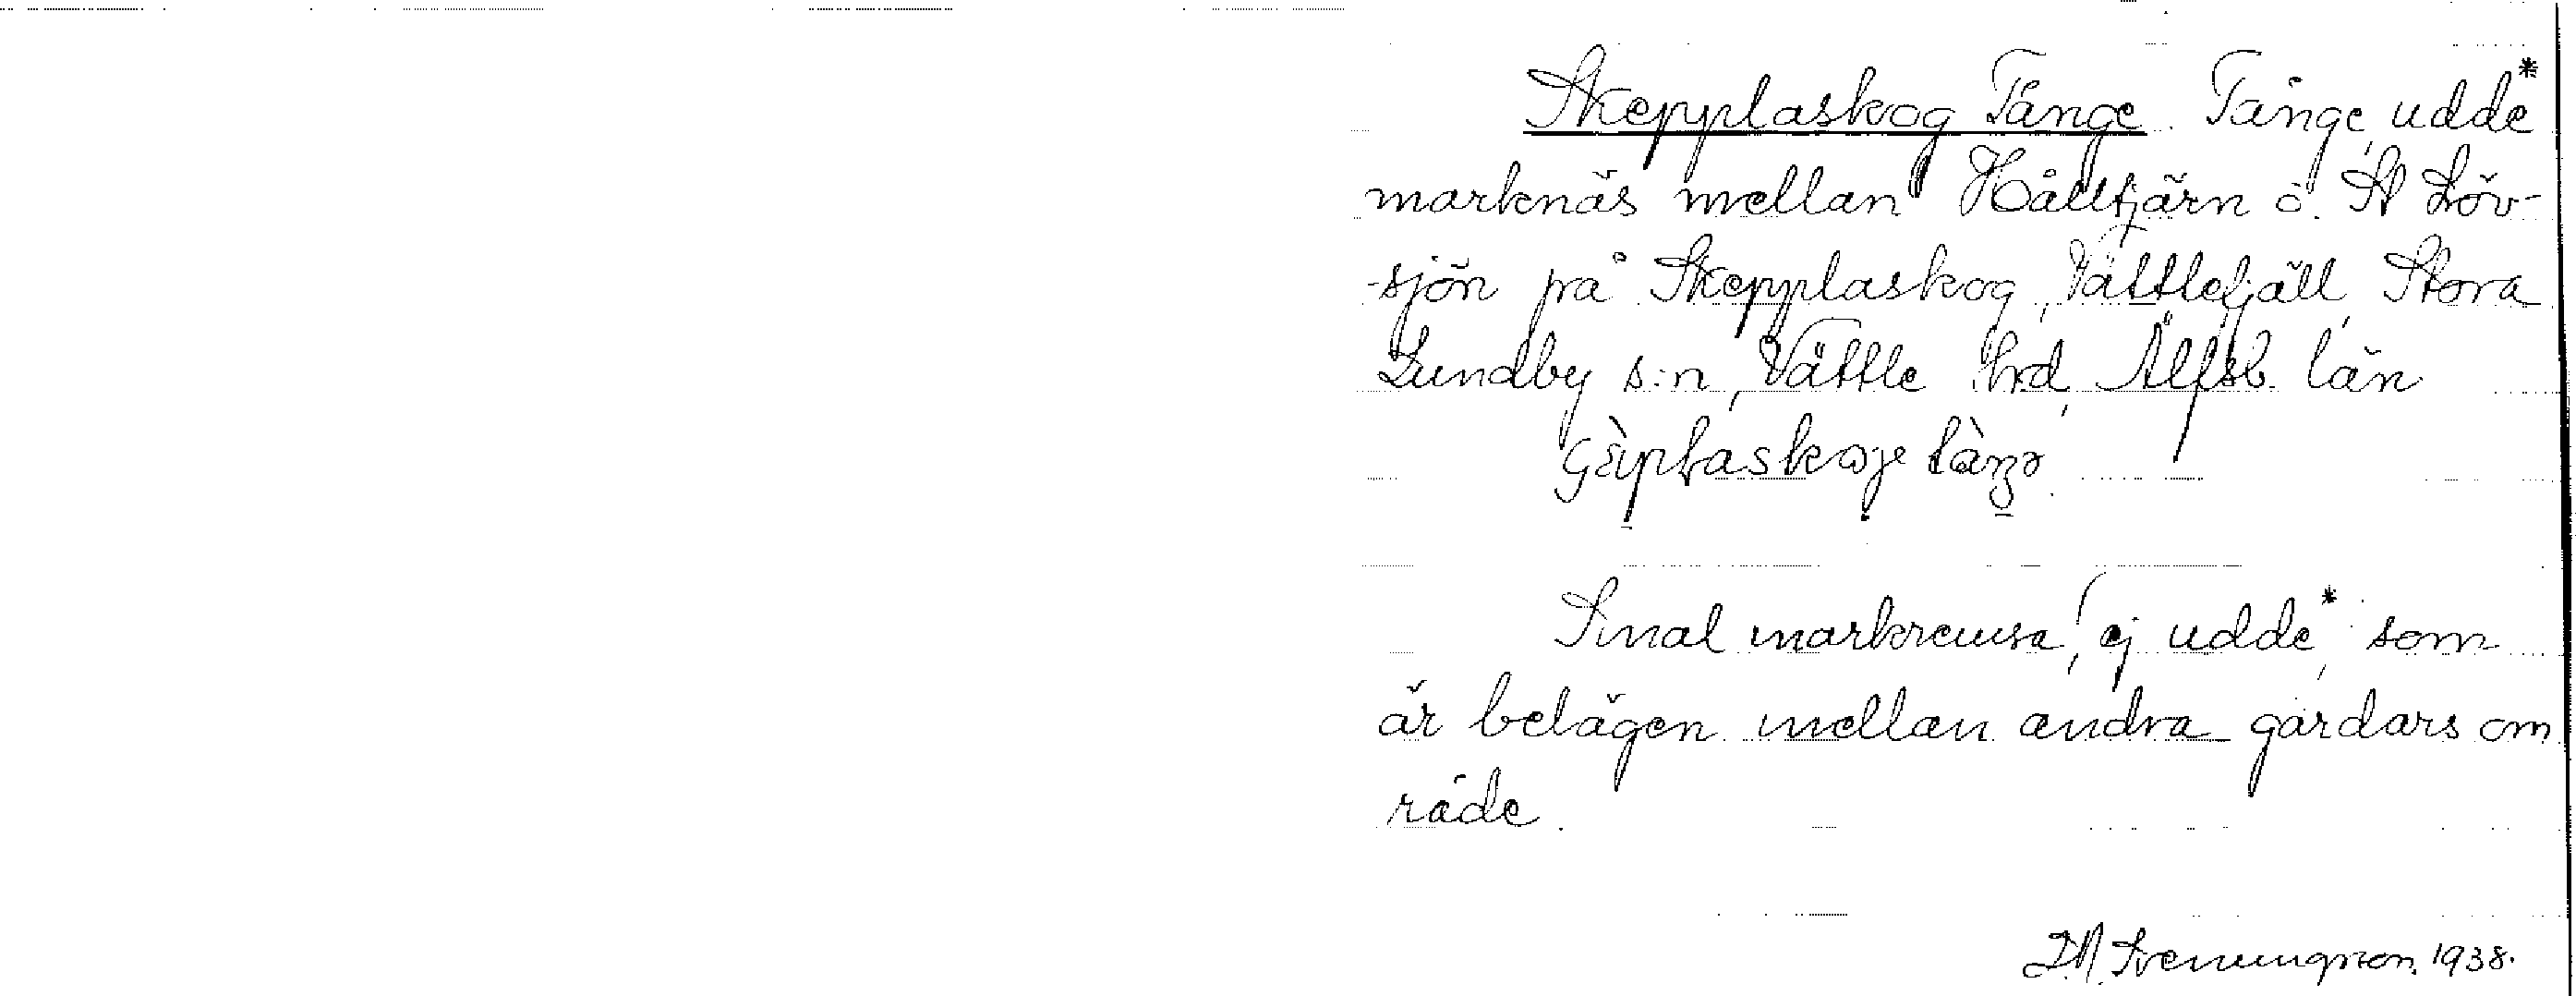 Skepplaskog Tånge. Tånge, udde*
marknäs mellan Hålltjärn o. St Löv-
-sjön på Skepplaskog, Vättlefjäll, Stora
Lundby s:n, Vättle hrd, Älfsb. län
Smal markremsa, (ej udde,* som
är belägen mellan andra gårdars om
råde.
Svenungsson, 1938.